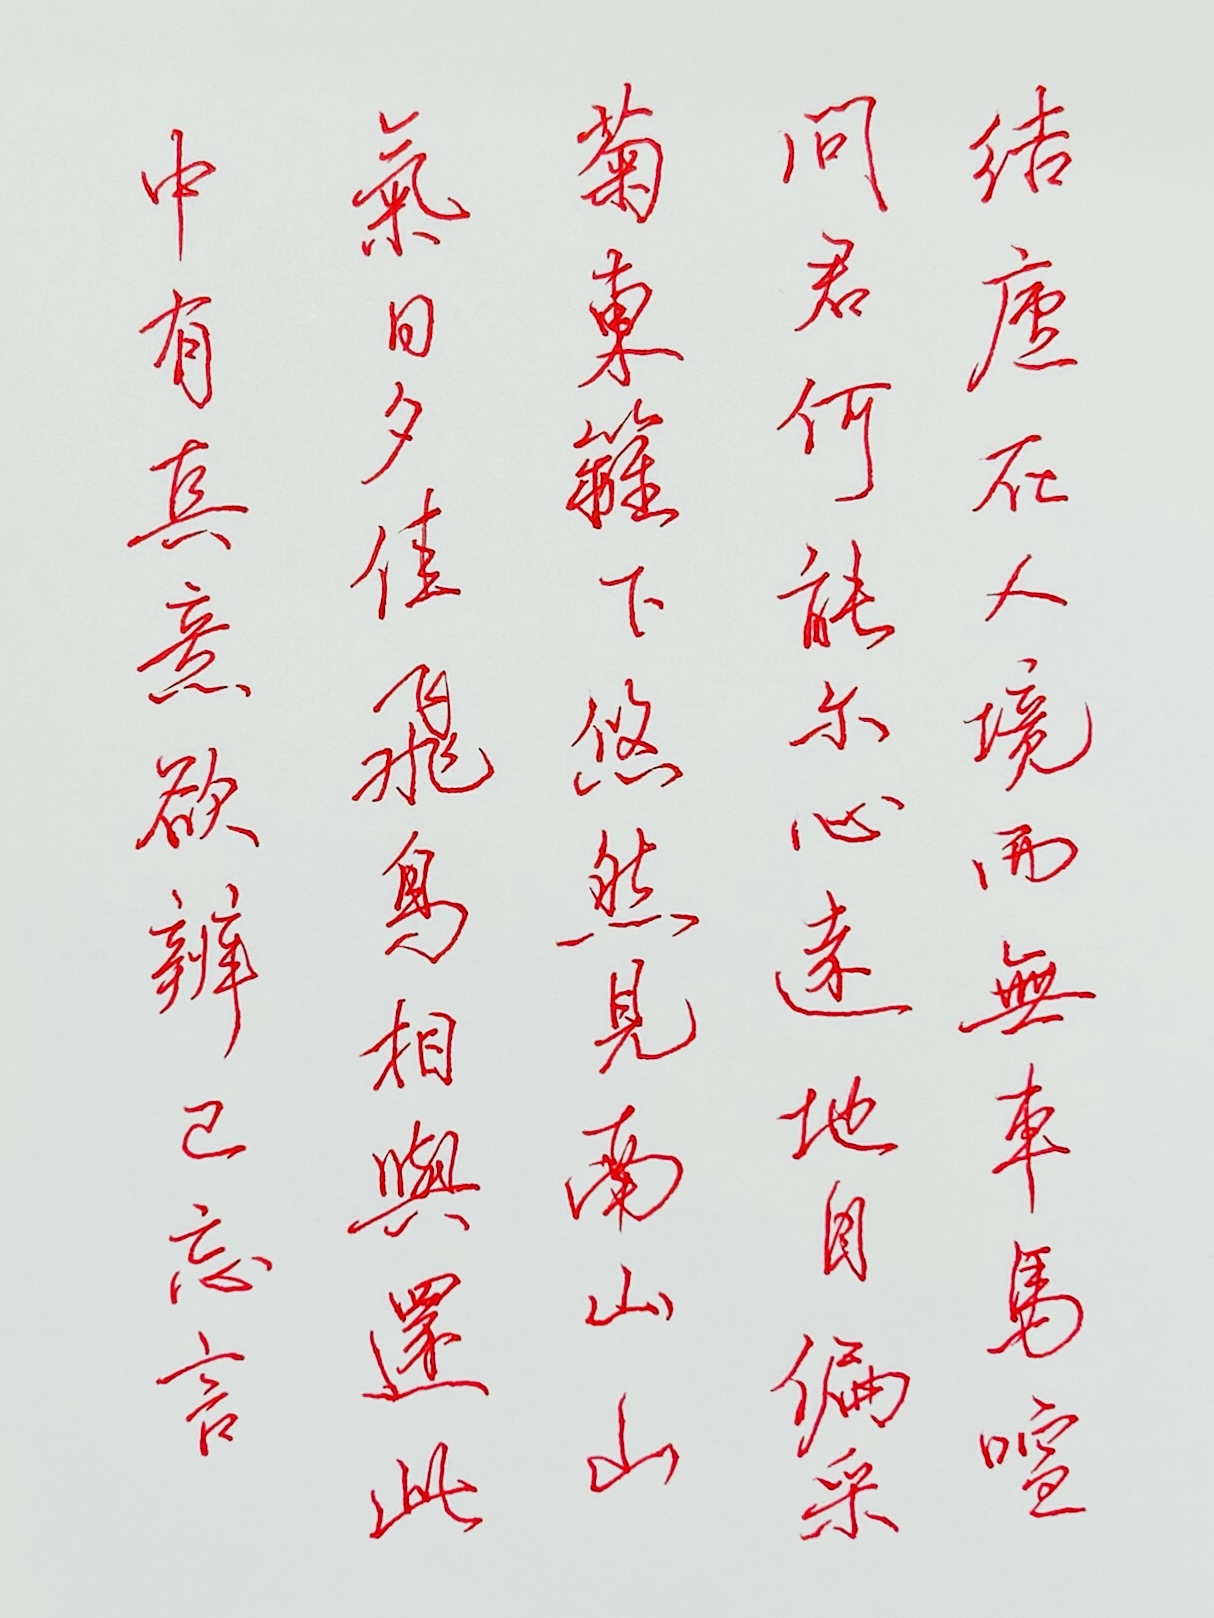 結廬在人境而無車馬喧
問君何能尔心遠地自偏采
菊東籬下悠然見南山山
氣日夕佳飛鳥相與還此
中有真意欲辨已忘言